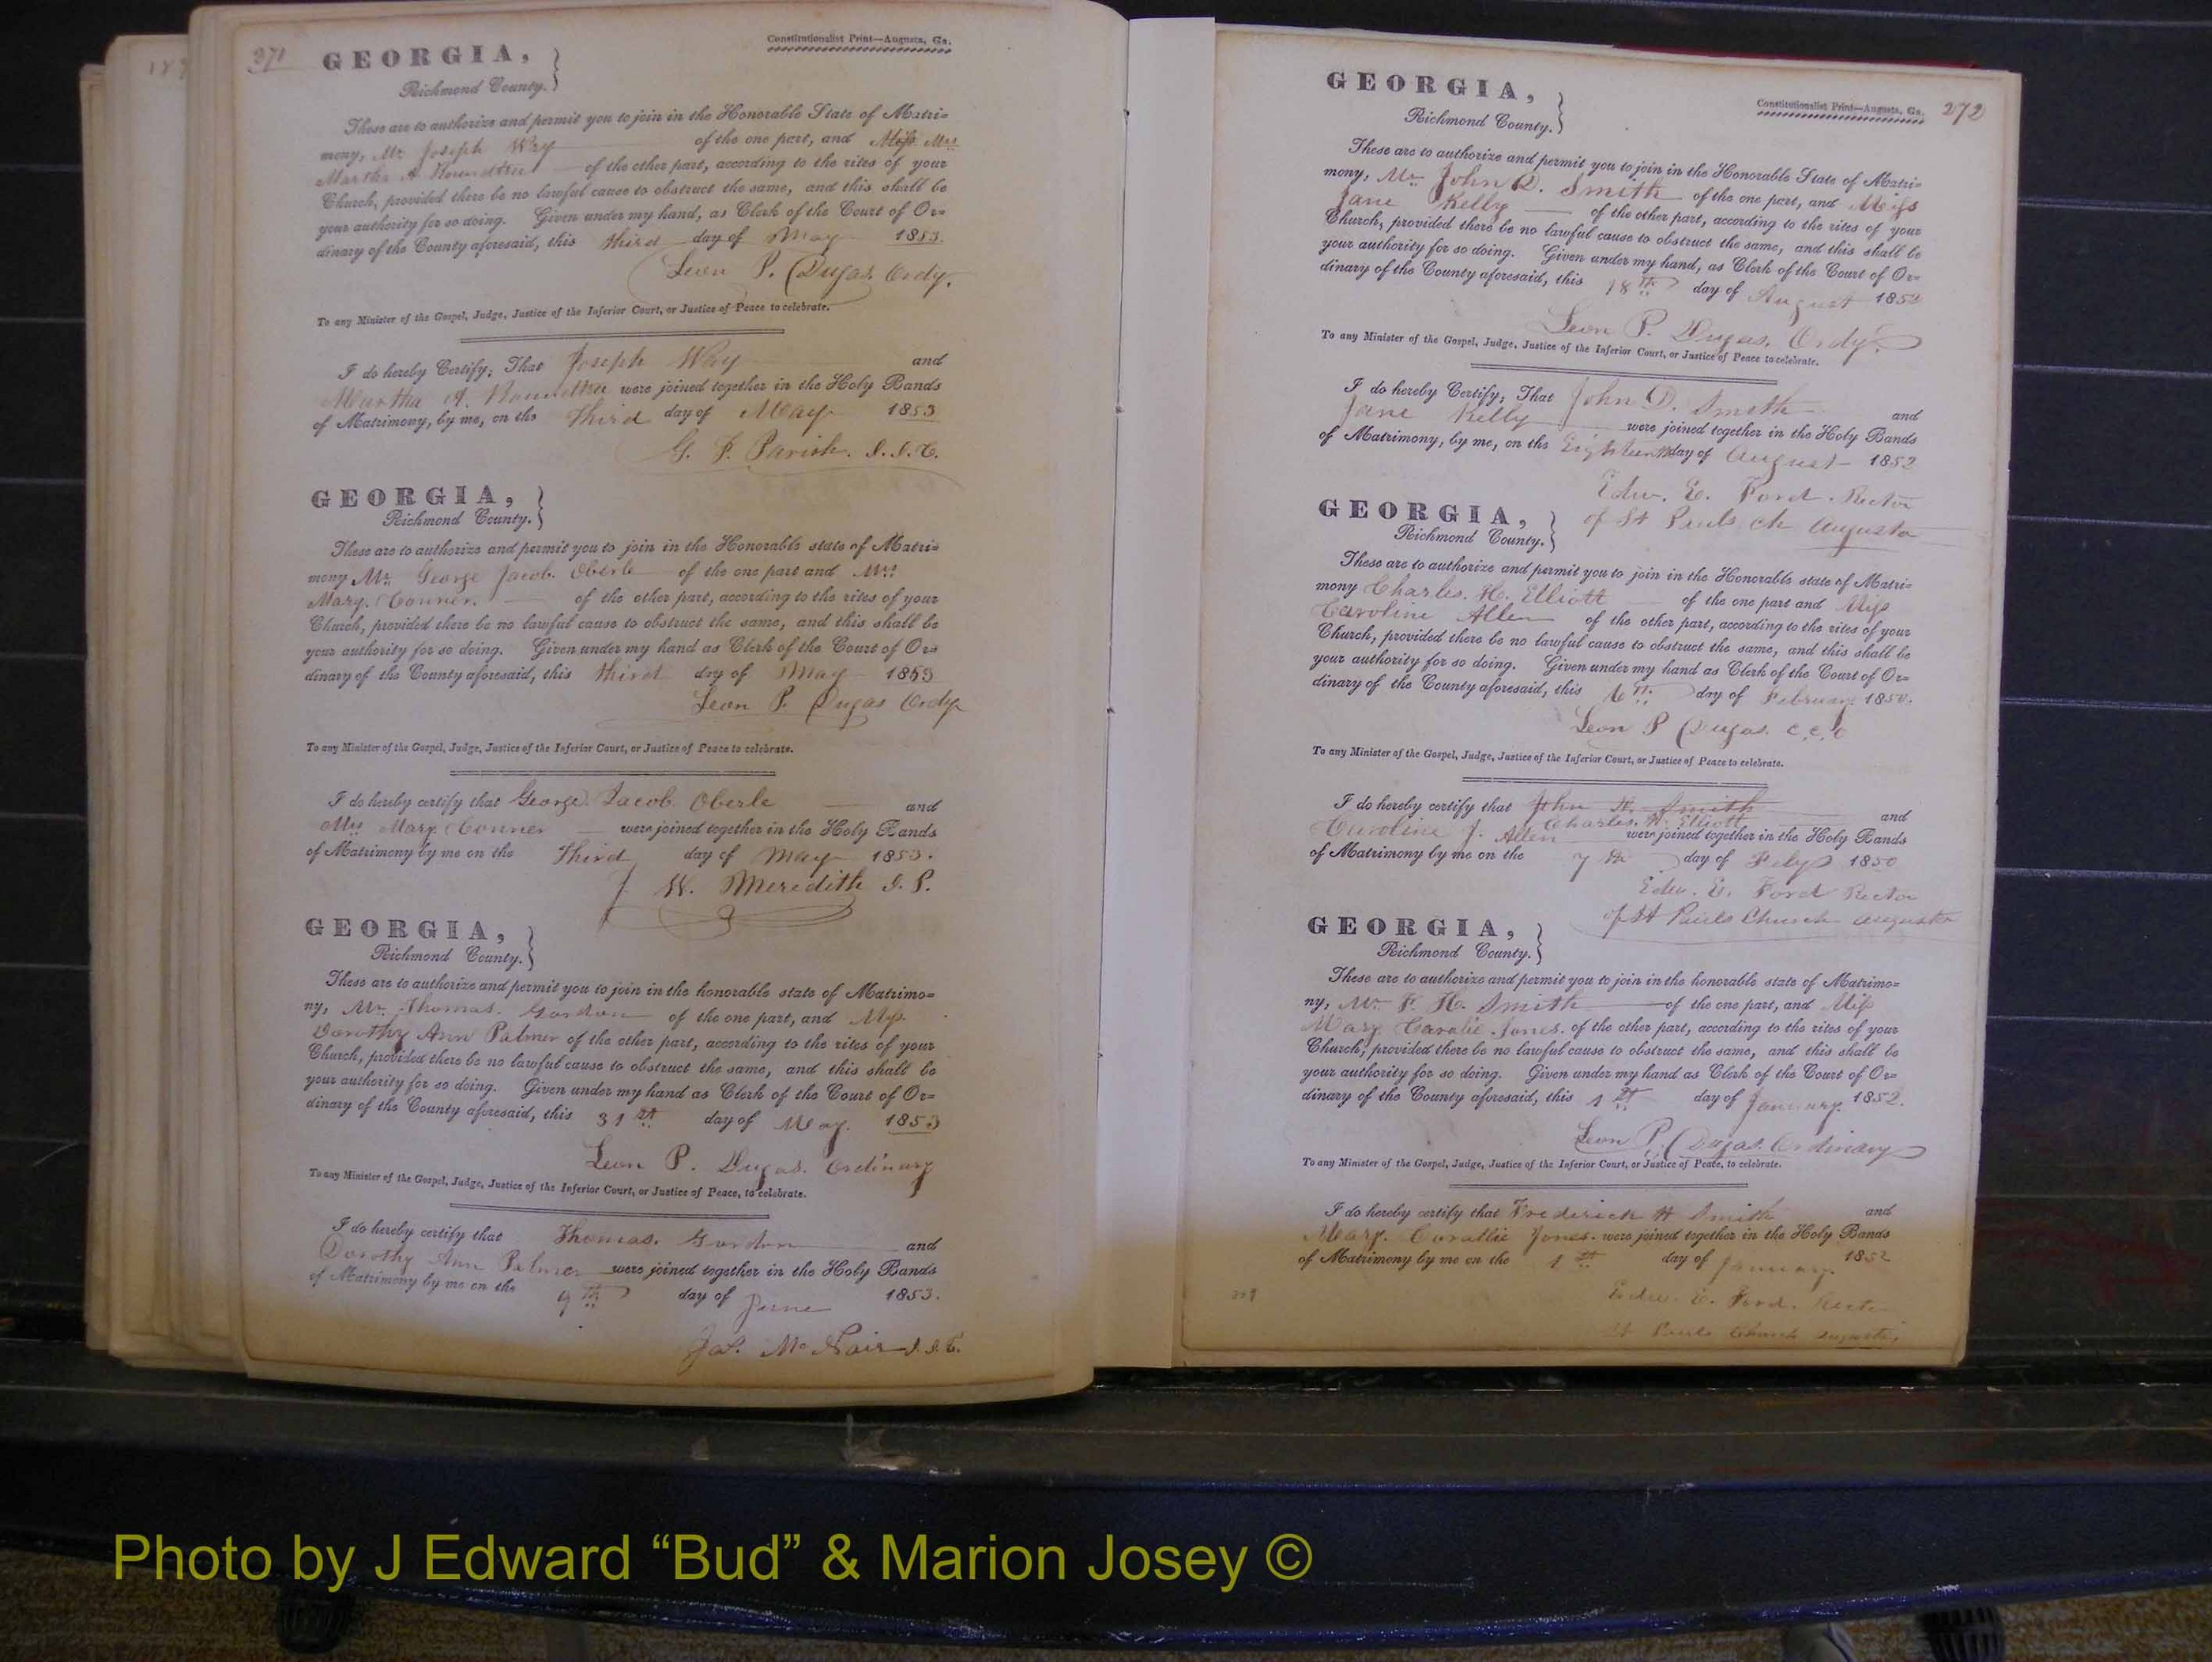 271
Constitutionalist Print—Augusta, Ga.
GEORGIA,
Richmond County.
These are to authorize and permit you to join in the Honorable State of Matri-
mony, Mr Joseph Way of the one part, and Miss Mrs
Martha A. Roundtree of the other part, according to the rites of your
Church, provided there be no lawful cause to obstruct the same, and this shall be
your authority for so doing. Given under my hand, as Clerk of the Court of Or-
dinary of the County aforesaid, this third day of May 1853.
Leon P. Dugas. Ordy.
To any Minister of the Gospel, Judge, Justice of the Inferior Court, or Justice of Peace to celebrate.
I do hereby Certify; That Joseph Way and
Martha A. Roundtree were joined together in the Holy Bands
of Matrimony, by me, on the third day of May 1853
G. F. Parish. J.I.C.
GEORGIA,
Richmond County.
These are to authorize and permit you to join in the Honorable state of Matri-
mony Mr. George Jacob. Oberle of the one part and Mrs
Mary. Conner. of the other part, according to the rites of your
Church, provided there be no lawful cause to obstruct the same, and this shall be
your authority for so doing. Given under my hand as Clerk of the Court of Or-
dinary of the County aforesaid, this third day of May 1853
Leon P. Dugas Ordy
To any Minister of the Gospel, Judge, Justice of the Inferior Court, or Justice of Peace to celebrate.
I do hereby certify that George Jacob Oberle and
Mrs Mary Conner were joined together in the Holy Bands
of Matrimony by me on the Third day of May 1853.
J. W. Meredith J.P.
GEORGIA,
Richmond County.
These are to authorize and permit you to join in the honorable state of Matrimo-
ny, Mr. Thomas. Gordon of the one part, and Miss.
Dorothy Ann Palmer of the other part, according to the rites of your
Church, provided there be no lawful cause to obstruct the same, and this shall be
your authority for so doing. Given under my hand as Clerk of the Court of Or-
dinary of the County aforesaid, this 31st day of May. 1853
Leon P. Dugas. Ordinary
To any Minister of the Gospel, Judge, Justice of the Inferior Court, or Justice of Peace, to celebrate.
I do hereby certify that Thomas. Gordon and
Dorothy Ann Palmer were joined together in the Holy Bands
of Matrimony by me on the 9th day of June 1853.
Jas. McNair J.I.C.
Constitutionalist Print—Augusta, Ga. 272
GEORGIA,
Richmond County.
These are to authorize and permit you to join in the Honorable State of Matri-
mony, Mr. John D. Smith of the one part, and Miss
Jane Kelly of the other part, according to the rites of your
Church, provided there be no lawful cause to obstruct the same, and this shall be
your authority for so doing. Given under my hand, as Clerk of the Court of Or-
dinary of the County aforesaid, this 18th day of August 1852
Leon P. Dugas. Ordy.
To any Minister of the Gospel, Judge, Justice of the Inferior Court, or Justice of Peace to celebrate.
I do hereby Certify; That John D. Smith and
Jane Kelly were joined together in the Holy Bands
of Matrimony, by me, on the Eighteenth day of August 1852
Edw. E. Ford. Rector
of St Pauls Ch Augusta
GEORGIA,
Richmond County.
These are to authorize and permit you to join in the Honorable state of Matri-
mony Charles. H. Elliott of the one part and Miss
Caroline Allen of the other part, according to the rites of your
Church, provided there be no lawful cause to obstruct the same, and this shall be
your authority for so doing. Given under my hand as Clerk of the Court of Or-
dinary of the County aforesaid, this 6th day of February 1850.
Leon P Dugas. C.C.O
To any Minister of the Gospel, Judge, Justice of the Inferior Court, or Justice of Peace to celebrate.
I do hereby certify that John Smith and
Charles. H. Elliott
Caroline J. Allen were joined together in the Holy Bands
of Matrimony by me on the 7th day of Feby 1850
Edw. E. Ford Rector
of St Pauls Church Augusta
GEORGIA,
Richmond County.
These are to authorize and permit you to join in the honorable state of Matrimo-
ny, Mr. F. H. Smith of the one part, and Miss
Mary Caralie Jones. of the other part, according to the rites of your
Church, provided there be no lawful cause to obstruct the same, and this shall be
your authority for so doing. Given under my hand as Clerk of the Court of Or-
dinary of the County aforesaid, this 1st day of January. 1852.
Leon P. Dugas. Ordinary
To any Minister of the Gospel, Judge, Justice of the Inferior Court, or Justice of Peace, to celebrate.
I do hereby certify that Frederick H Smith and
Mary. Corallie Jones. were joined together in the Holy Bands
of Matrimony by me on the 1st day of January. 1852
Edw. E. Ford. Rector
St Pauls Church Augusta,
Photo by J Edward “Bud” & Marion Josey ©